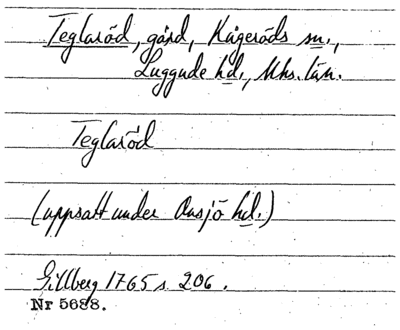 Teglaröd, gård, Kågeröds sn.,
Luggude hd., Mhs. län.
Teglaröd
(uppsatt under Onsjö hd.)
Gillberg 1765 s. 206.
Nr 5688.